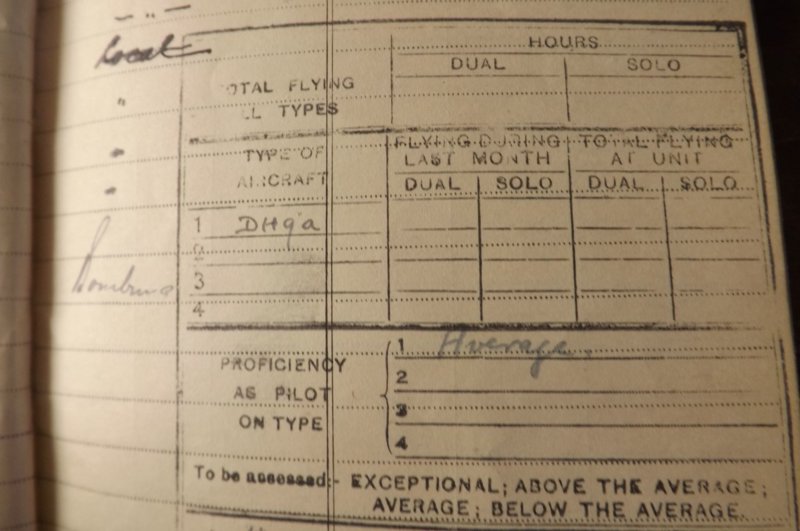 - " -
Local
HOURS
DUAL SOLO
TOTAL FLYING
ALL TYPES
TYPE OF
AIRCRAFT
FLYING DURING
LAST MONTH
TOTAL FLYING
AT UNIT
DUAL SOLO DUAL SOLO
1 DH9a
2
3
4
PROFICIENCY
AS PILOT
ON TYPE
1 Average.
2
3
4
To be assessed:- EXCEPTIONAL; ABOVE THE AVERAGE;
AVERAGE; BELOW THE AVERAGE.